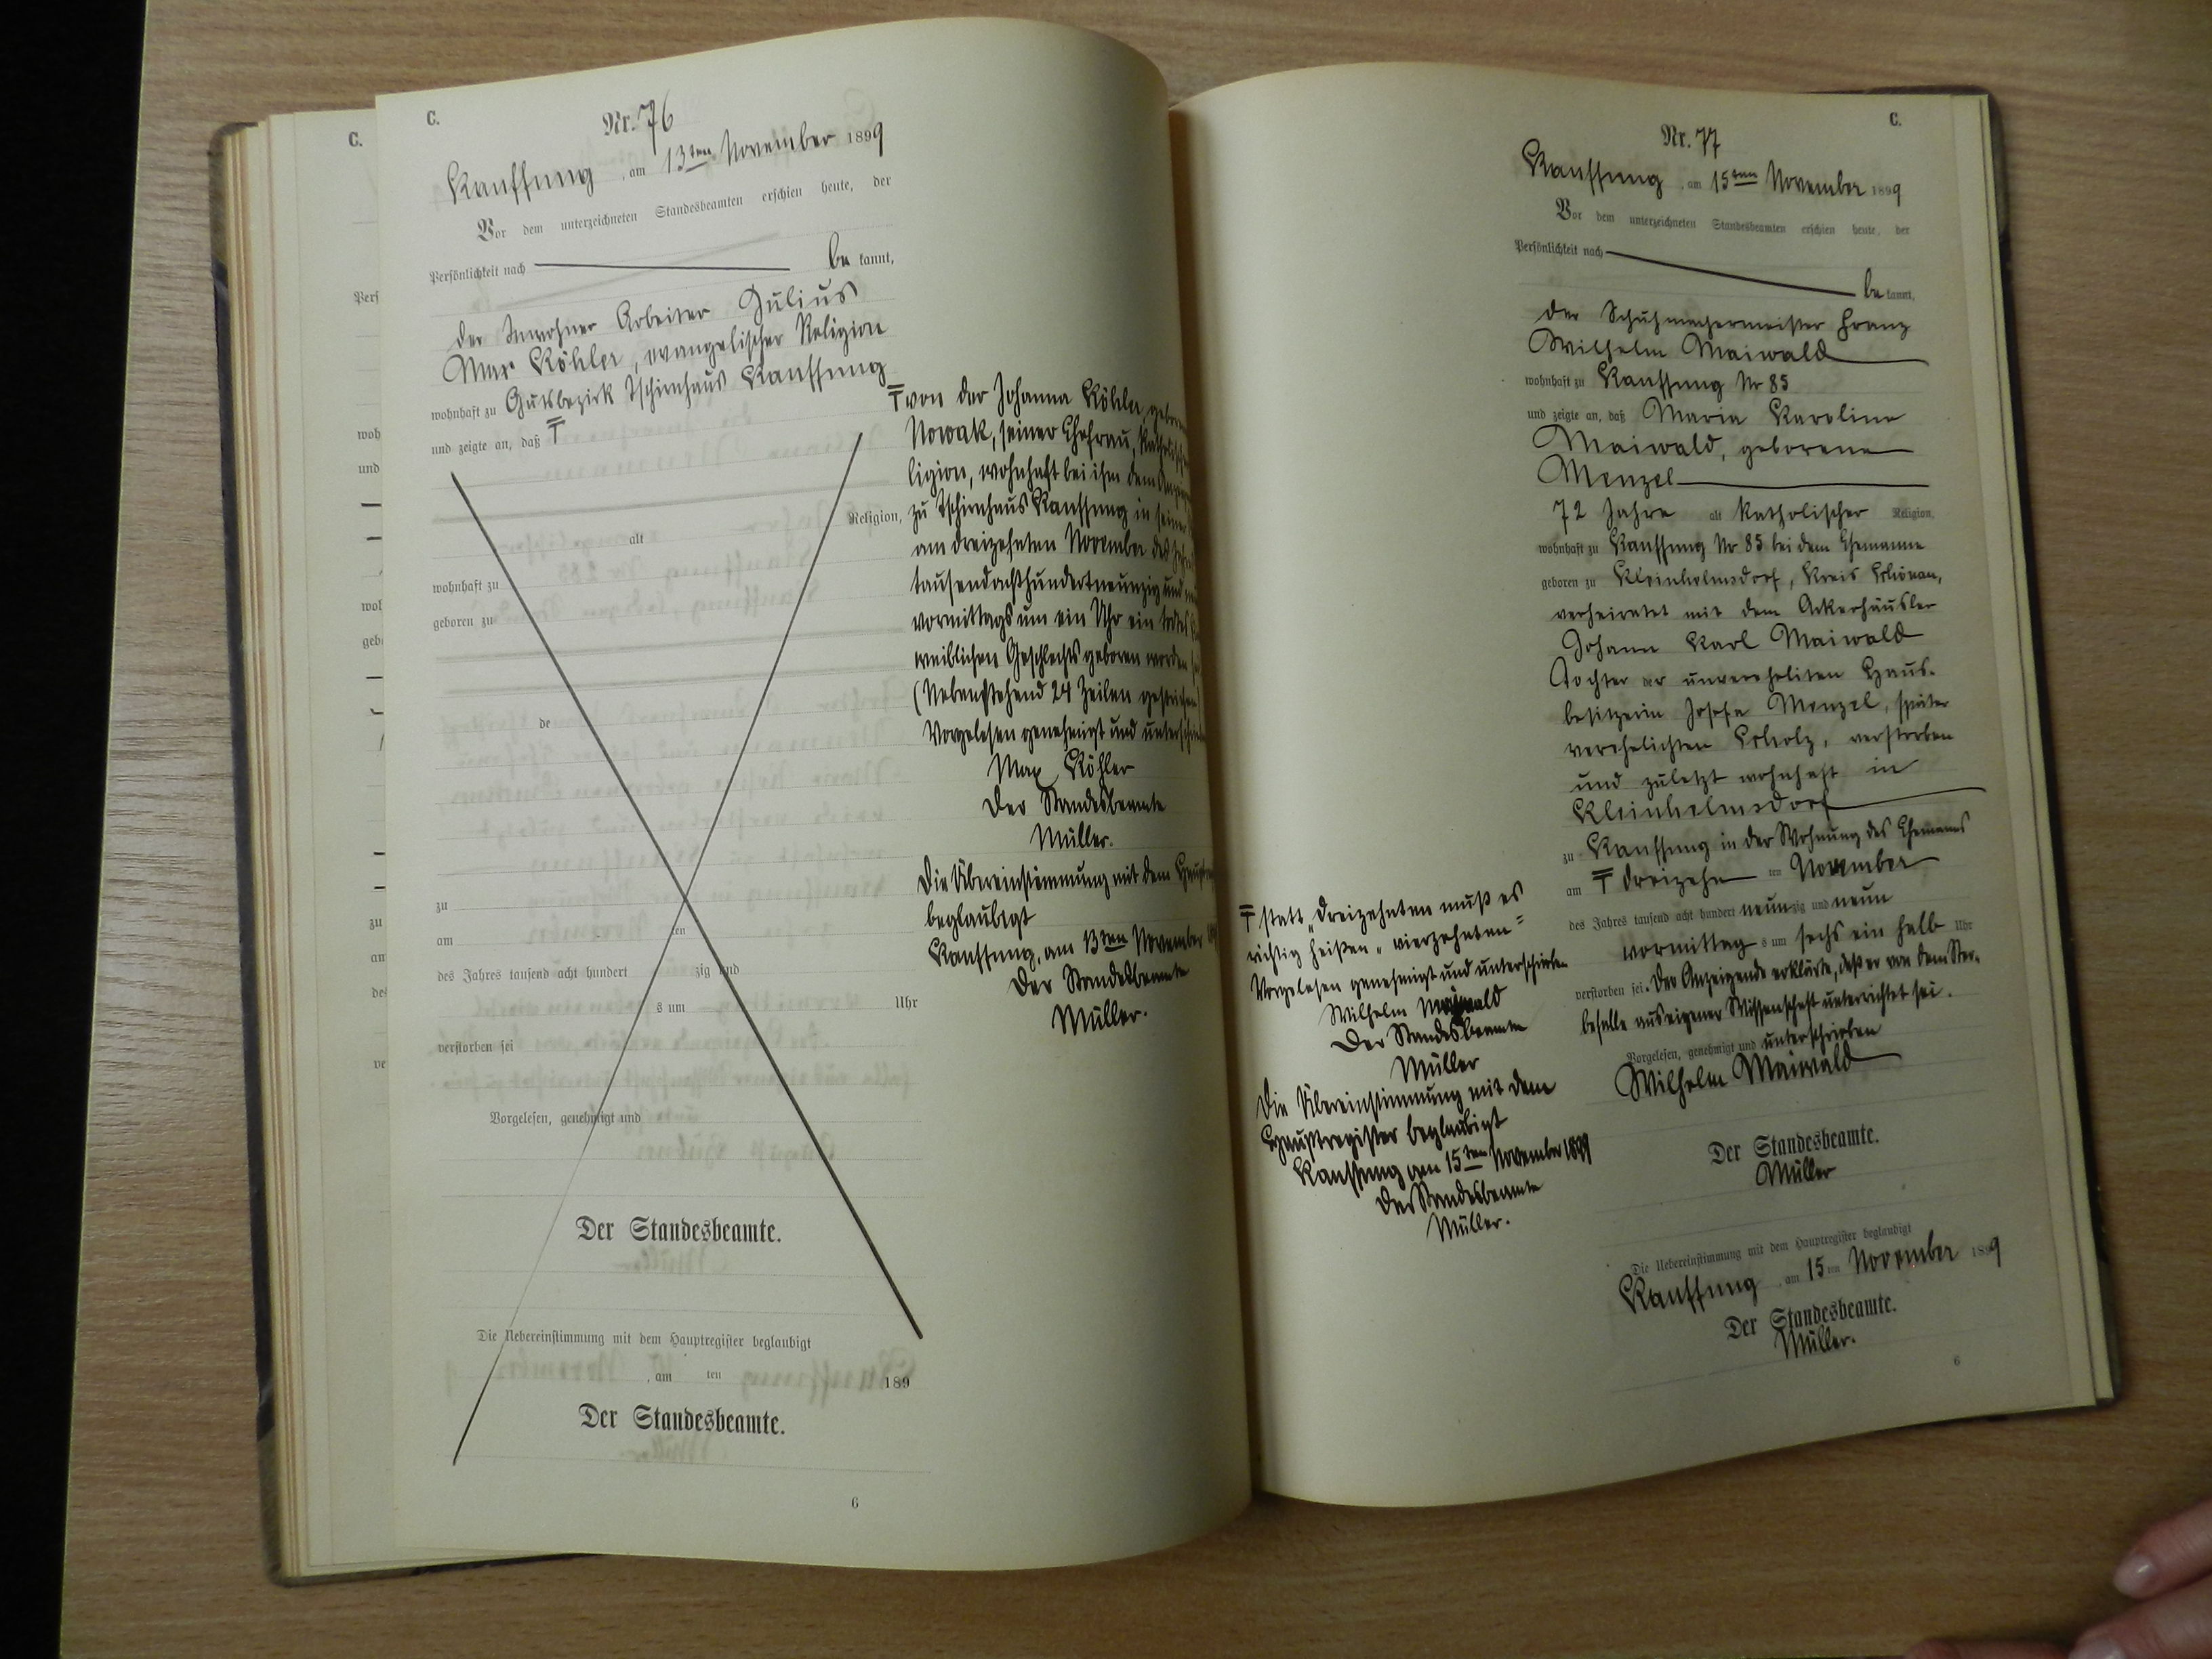 C.
Pers
woh
und
wol
geb
zu
an
des
ve
C.
Nr. 76
Kauffung, am 13ten November 1899
Vor dem unterzeichneten Standesbeamten erschien heute, der
Persönlichkeit nach be kannt,
der Inwohner Arbeiter Julius
Max Köhler, evangelischer Religion
wohnhaft zu Gutsbezirk Tschirnhaus Kauffung
und zeigte an, daß
alt Religion,
wohnhaft zu
geboren zu
de
zu
am ten
des Jahres tausend acht hundert zig und
s um Uhr
verstorben sei
Vorgelesen, genehmigt und
Der Standesbeamte.
Die Uebereinstimmung mit dem Hauptregister beglaubigt
, am ten 189
Der Standesbeamte.
6
von der Johanna Köhler, gebor
Nowak, seiner Ehefrau, katholisch
ligion, wohnhaft bei ihm dem
zu Tschirnhaus Kauffung in seiner
am dreizehnten November des
tausendachthundertneunzig und
vormittags um ein Uhr ein todtes
weiblichen Geschlechts geboren worden
(Nebenstehend 24 Zeilen gestrichen)
Vorgelesen genehmigt und
Max Köhler
Der Standesbeamte
Müller.
Die Übereinstimmung mit dem
beglaubigt
Kauffung, am 13ten November
Der Standesbeamte
Müller.
C.
Nr. 77
Kauffung, am 15ten November 1899
Vor dem unterzeichneten Standesbeamten erschien heute, der
Persönlichkeit nach be kannt,
der Schuhmachermeister Franz
Wilhelm Maiwald
wohnhaft zu Kauffung Nr 85
und zeigte an, daß Maria Karolina
Maiwald, geborene
Menzel
72 Jahre alt katholischer Religion,
wohnhaft zu Kauffung Nr 85 bei dem Ehemanne
geboren zu Kleinhelmsdorf, Kreis Schönau,
verheiratet mit dem Ackerhäusler
Johann Karl Maiwald
Tochter der unverehelichten Haus-
besitzerin Josefa Menzel, später
verehelichten Scholz, verstorben
und zuletzt wohnhaft in
Kleinhelmsdorf
zu Kauffung in der Wohnung des Ehemannes
am dreizehn ten November
des Jahres tausend acht hundert neunzig und neun
vormittag s um sechs ein halb Uhr
verstorben sei. Der Anzeigende erklärte, daß er von dem Ster-
befalle aus eigener Wissenschaft unterrichtet sei.
Vorgelesen, genehmigt und unterschrieben
Wilhelm Maiwald
Der Standesbeamte.
Müller
Die Uebereinstimmung mit dem Hauptregister beglaubigt
Kauffung, am 15ten November 1899
Der Standesbeamte.
Müller.
6
statt "dreizehnten muß es
richtig heißen "vierzehnten"
Vorgelesen genehmigt und unterschrieben
Wilhelm Maiwald
Der Standesbeamte
Müller
Die Übereinstimmung mit dem
Hauptregister beglaubigt
Kauffung am 15ten November 1899
Der Standesbeamte
Müller.